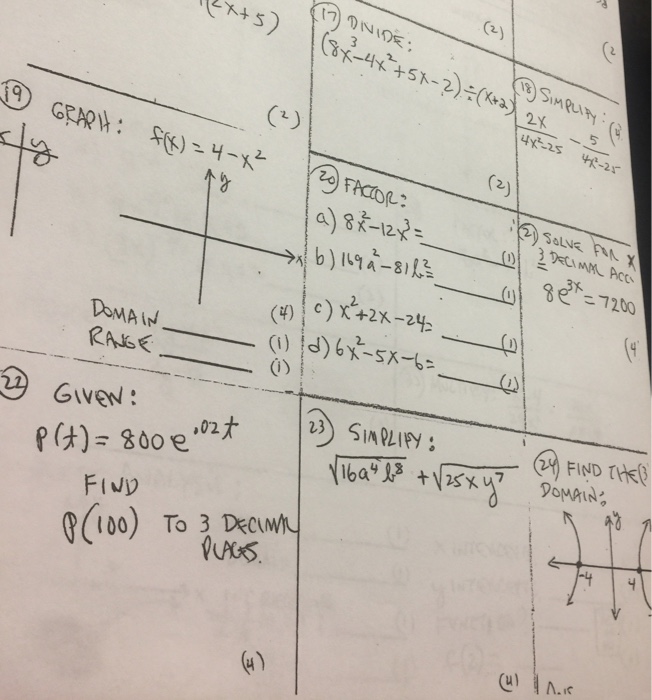 (2x+5)
(2)
17) DIVIDE:
(8x³-4x²+5x-2)÷(x+2)
(2)
(2)
18) SIMPLIFY:
2x/4x²-25 - 5/4x²-25
19)
GRAPH: f(x) = 4-x²
y
y
x
DOMAIN ______ (4)
RANGE ______ (1)
(1)
20) FACTOR:
a) 8x²-12x³= ______ (1)
b) 169a²-81b²= ______ (1)
c) x²+2x-24= ______ (1)
d) 6x²-5x-6= ______ (1)
21) SOLVE FOR X
3 DECIMAL ACC
8e^3x = 7200
(4
22) GIVEN:
P(t) = 800e^.02t
FIND
P(100) TO 3 DECIMAL
PLACES.
(4)
23) SIMPLIFY:
√16a⁴b⁸ + √25xy⁷
(4)
24) FIND THE
DOMAIN:
y
-4 4